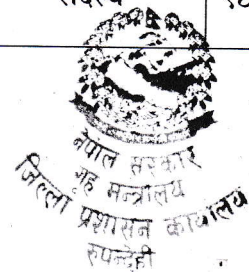 सदस्य
नेपाल सरकार
गृह मन्त्रालय
जिल्ला प्रशासन कार्यालय
रुपन्देही